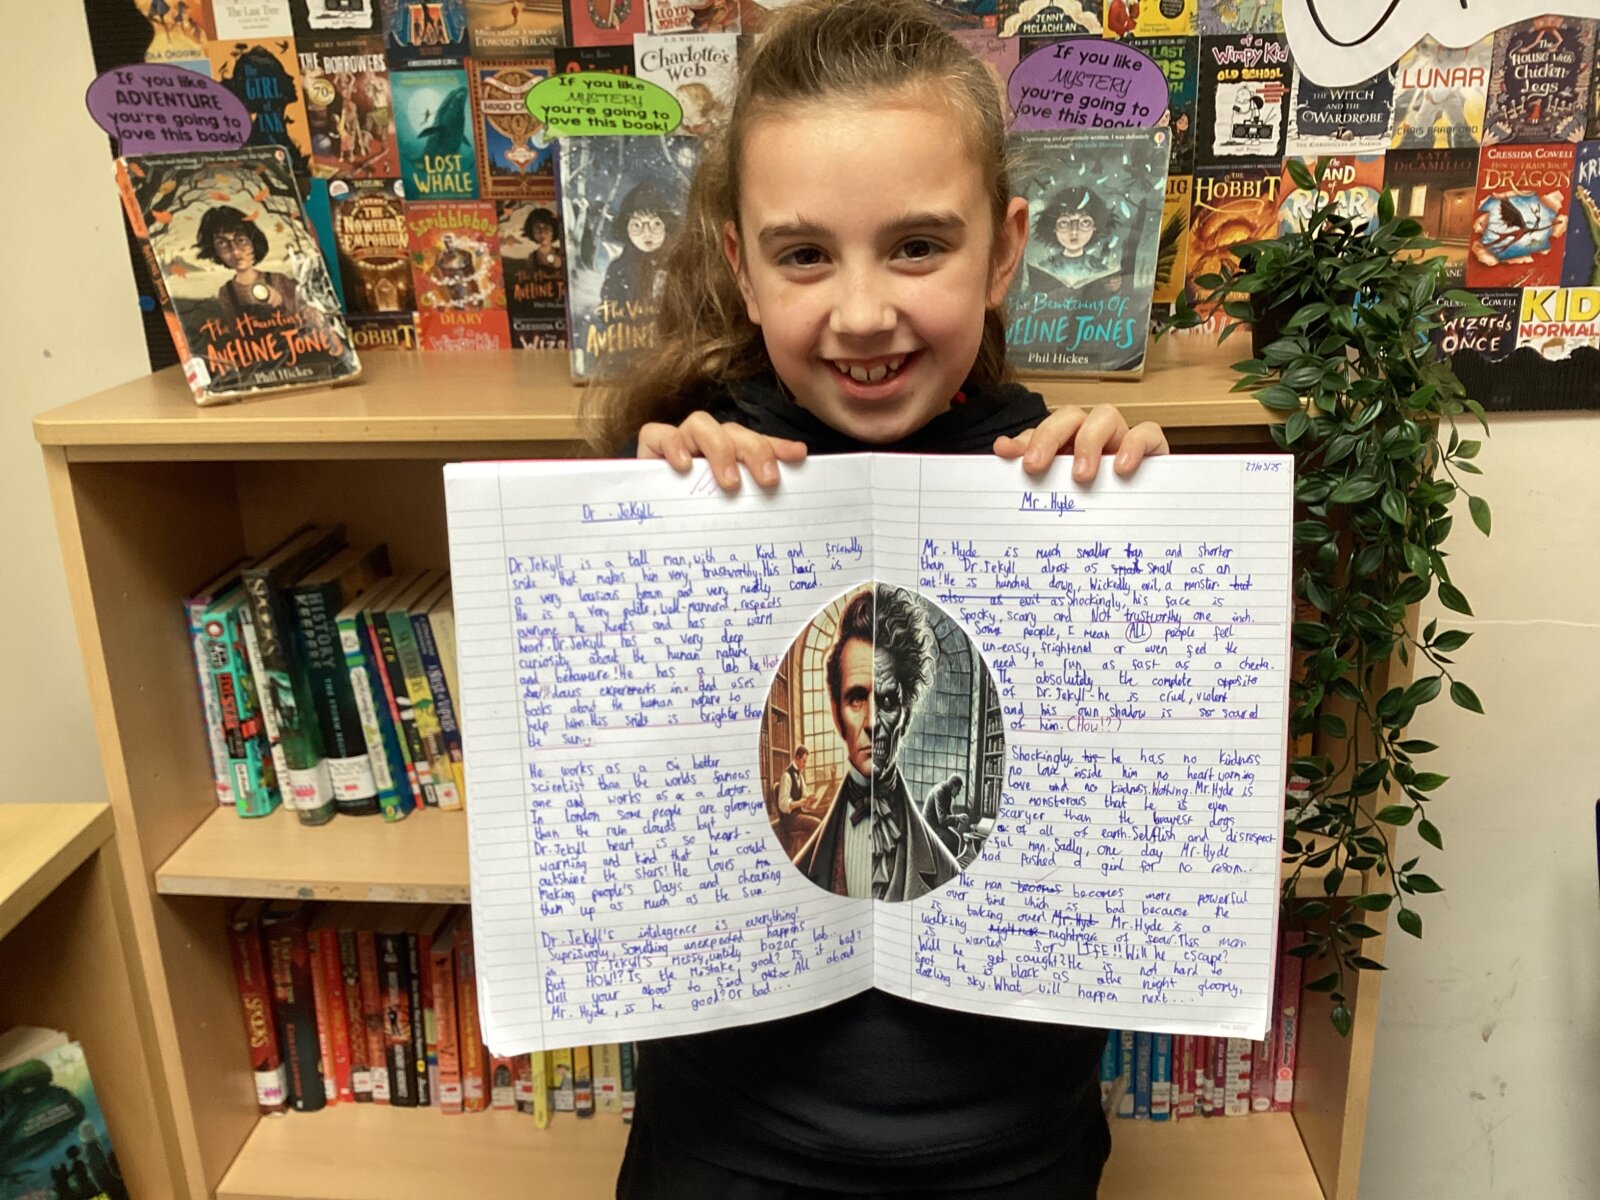 The Last Tree
MARY NORTON
THE BORROWERS
70
THE GIRL OF INK
LOST WHALE
HUGO
EDWARD TULANE
LLOYD JONES
E.B. WHITE
Charlotte's Web
JENNY MCLACHLAN
LAST
Wimpy Kid
OLD SCHOOL
THE WITCH AND THE WARDROBE
THE CHRONICLES OF NARNIA
LUNAR
CHRIS BRADFORD
THE HOUSE WITH Chicken Legs
KATE DiCAMILLO
CRESSIDA COWELL
HOW TO TRAIN YOUR DRAGON
THE HOBBIT
THE LAND OF ROAR
THE NOWHERE EMPORIUM
Scribbleboy
DIARY
HOBBIT
CRESSIDA COWELL
WIZARDS of ONCE
KID NORMAL
If you like
ADVENTURE
you're going to
love this book!
If you like
MYSTERY
you're going to
love this book!
If you like
MYSTERY
you're going to
love this book!
The Haunting of
AVELINE JONES
Phil Hickes
AVELINE
The Bewitching Of
AVELINE JONES
Phil Hickes
Dr. Jekyll
Dr.Jekyll is a tall man, with a kind and friendly
smile that makes him very trustworthy. His hair is
a very lousious brown and very neatly comed.
He is a very polite, well-mannord, respects
everyone he meets and has a warm
heart. Dr.Jekyll has a very deep
curiosity about the human nature
and behavure! He has a lab he that
does experements in. and uses
books about the human nature to
help him. His smile is brighter than
the sun.
He works as a better
scientist than the worlds famous
one and works as a doctor.
In london some people are gloomyer
than the rain clouds but
Dr.Jekyll heart is so heart-
warming and kind that he could
outshine the stars! He loves
making people's Days and chearing
them up as much as the sun.
Dr.Jekyll's intelegence is everything!
Suprisingly, something unexpected happens
in Dr.Jekyll's messy, untidy bazar lab...
But HOW!? Is the mistake good? Is it bad?
Well your about to find out. All about
Mr. Hyde, is he good? Or bad...
27/03/25
Mr. Hyde
Mr. Hyde is much smaller than and shorter
than Dr.Jekyll almost as small small as an
ant! He is hunched down, Wickedly evil, a monster but
also as evil as Shockingly, his face is
Spooky, scary and NOT trustworthy one inch.
Some people, I mean ALL people feel
un-easy, frightened or even feel the
need to run as fast as a cheeta.
The absolutely the complete opposite
of Dr.Jekyll- he is cruel, violent
and his own shadow is so scared
of him. (HOW!?)
Shockingly, his he has no kidness
no love inside him no heart warming
love and no kidness. Nothing. Mr.Hyde is
so monsterous that he is even
scaryer than the bravest dogs
of all of earth. Selfish and disrespect
-ful man. Sadly, one day Mr. Hyde
had pushed a girl for no reson...
This man becomes becomes more powerful
over time which is bad because he
is taking over! Mr. Hyd Mr. Hyde is a
walking nightmare of fear. This man
is wanted for LIFE!! Will he escape?
Will he get caught? He is not hard to
spot he is black as the night gloomy,
dazling sky. What will happen next...